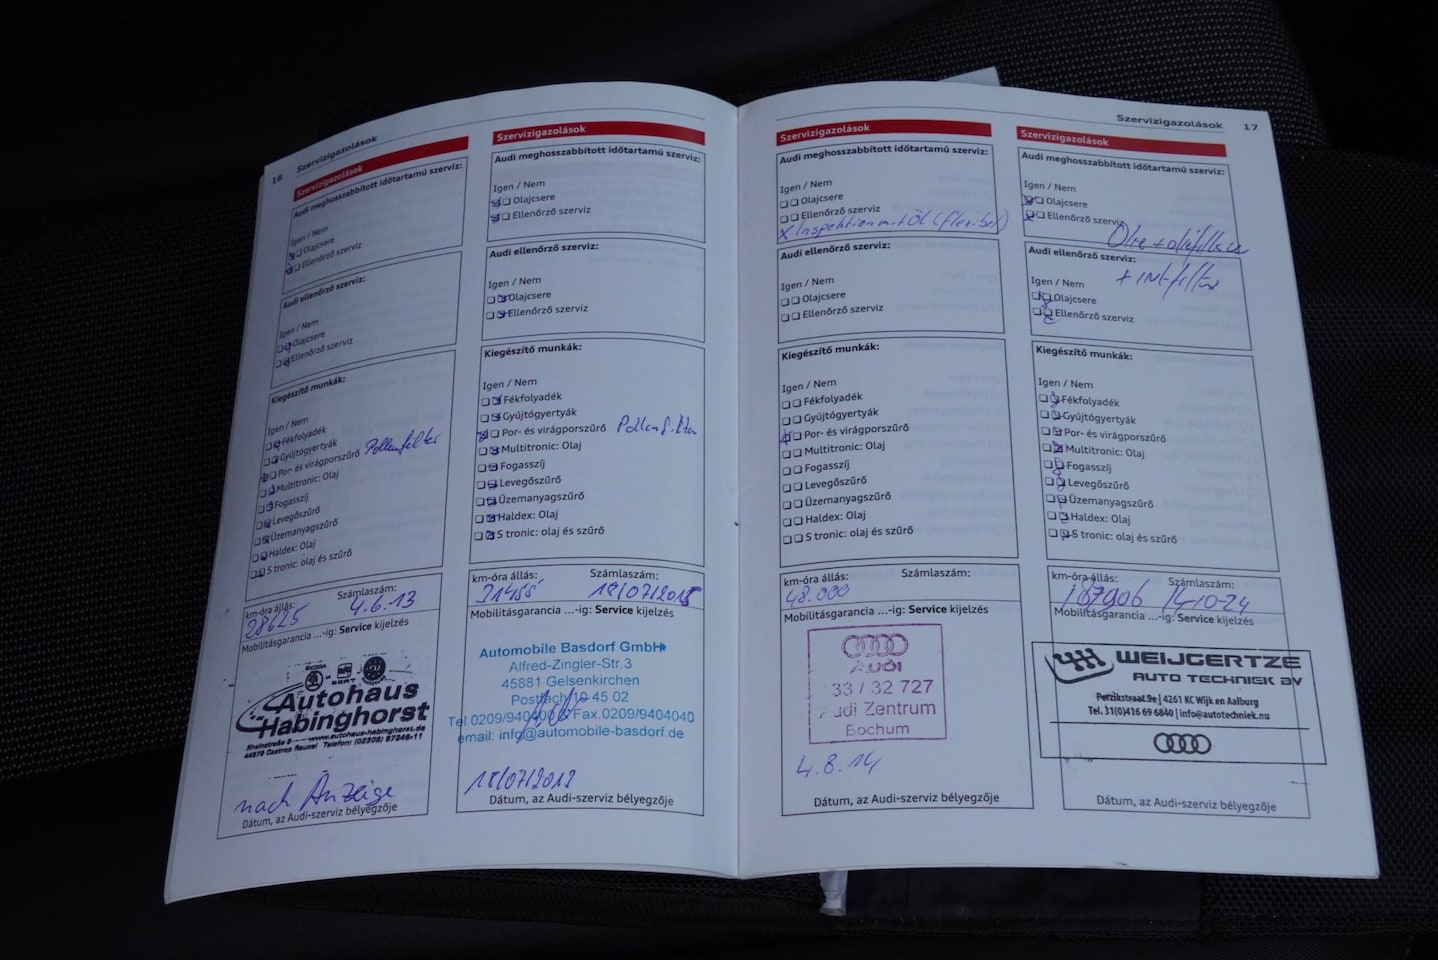 16 Szervizigazolások
Szervizigazolások
Audi meghosszabbított időtartamú szerviz:
Igen / Nem
Olajcsere
Ellenőrző szerviz
Audi ellenőrző szerviz:
Igen / Nem
Olajcsere
Ellenőrző szerviz
Kiegészítő munkák:
Igen / Nem
Fékfolyadék
Gyújtógyertyák
Por- és virágporszűrő Pollenfilter
Multitronic: Olaj
Fogasszíj
Levegőszűrő
Üzemanyagszűrő
Haldex: Olaj
S tronic: olaj és szűrő
km-óra állás: 4.6.13
28625
Mobilitásgarancia ...-ig: Service kijelzés
ŠKODA
SEAT
Autohaus
Habinghorst
Rheinstraße www.autohaus-habinghorst.de
44579 Castrop Rauxel Telefon:
nach Anzeige
Dátum, az Audi-szerviz bélyegzője
Szervizigazolások
Audi meghosszabbított időtartamú szerviz:
Igen / Nem
Olajcsere
Ellenőrző szerviz
Audi ellenőrző szerviz:
Igen / Nem
Olajcsere
Ellenőrző szerviz
Kiegészítő munkák:
Igen / Nem
Fékfolyadék
Gyújtógyertyák
Por- és virágporszűrő Pollenfilter
Multitronic: Olaj
Fogasszíj
Levegőszűrő
Üzemanyagszűrő
Haldex: Olaj
S tronic: olaj és szűrő
km-óra állás: Számlaszám:
Mobilitásgarancia ...-ig: Service kijelzés
Automobile Basdorf GmbH
Alfred-Zingler-Str.3
45881 Gelsenkirchen
Postfach 10 45 02
Tel.0209/940400 Fax.0209/9404040
email: info@automobile-basdorf.de
18/07/2013
Dátum, az Audi-szerviz bélyegzője
Szervizigazolások 17
Szervizigazolások
Audi meghosszabbított időtartamú szerviz:
Igen / Nem
Olajcsere
Ellenőrző szerviz
x Inspektion mit Öl (flexibel)
Audi ellenőrző szerviz:
Igen / Nem
Olajcsere
Ellenőrző szerviz
Kiegészítő munkák:
Igen / Nem
Fékfolyadék
Gyújtógyertyák
Por- és virágporszűrő
Multitronic: Olaj
Fogasszíj
Levegőszűrő
Üzemanyagszűrő
Haldex: Olaj
S tronic: olaj és szűrő
km-óra állás: Számlaszám:
48.000
Mobilitásgarancia ...-ig: Service kijelzés
Audi
33 / 32 727
Audi Zentrum
Bochum
4.8.14
Dátum, az Audi-szerviz bélyegzője
Szervizigazolások
Audi meghosszabbított időtartamú szerviz:
Igen / Nem
Olajcsere
Ellenőrző szerviz
Audi ellenőrző szerviz:
Igen / Nem
Olajcsere
Ellenőrző szerviz
Kiegészítő munkák:
Igen / Nem
Fékfolyadék
Gyújtógyertyák
Por- és virágporszűrő
Multitronic: Olaj
Fogasszíj
Levegőszűrő
Üzemanyagszűrő
Haldex: Olaj
S tronic: olaj és szűrő
km-óra állás: Számlaszám:
187906 14-10-24
Mobilitásgarancia ...-ig: Service kijelzés
WEIJGERTZE
AUTO TECHNIEK BV
Perzikstraat 9e | 4261 KC Wijk en Aalburg
Tel. 31(0)416 69 6840 | info@autotechniek.nu
Dátum, az Audi-szerviz bélyegzője